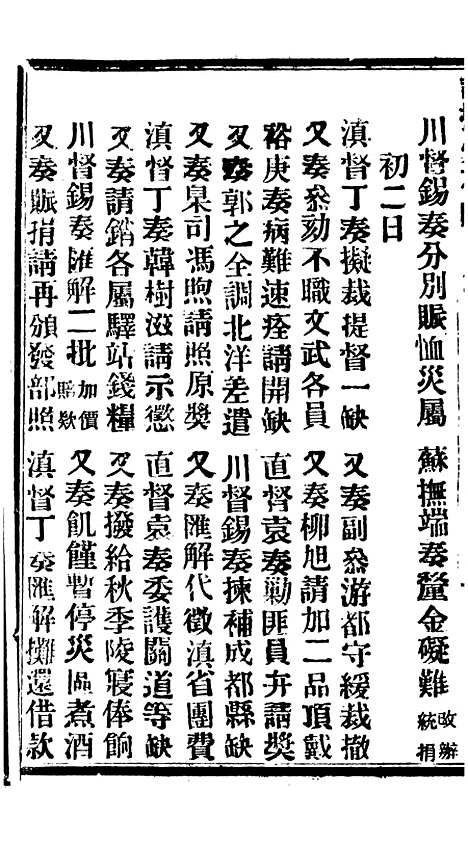 川督錫奏分別賑恤災屬　蘇撫端奏釐金礙難改辦統捐
初二日
滇督丁奏擬裁提督一缺　又奏副叅游都守緩裁撤
又奏叅劾不職文武各員　又奏柳旭請加二品頂戴
裕庚奏病難速痊請開缺　直督袁奏勦匪員弁請奬
又奏郭之全調北洋差遣　川督錫奏揀補成都縣缺
又奏臬司馮煦請照原奬　又奏匯解代徵滇省團費
滇督丁奏韓樹滋請示懲　直督袁奏委護關道等缺
又奏請銷各屬驛站錢糧　又奏撥給秋季陵寢俸餉
川督錫奏匯解二批加價賠欵　又奏飢饉暫停災區煮酒
又奏賑捐請再頒發部照　滇督丁奏匯解攤還借款